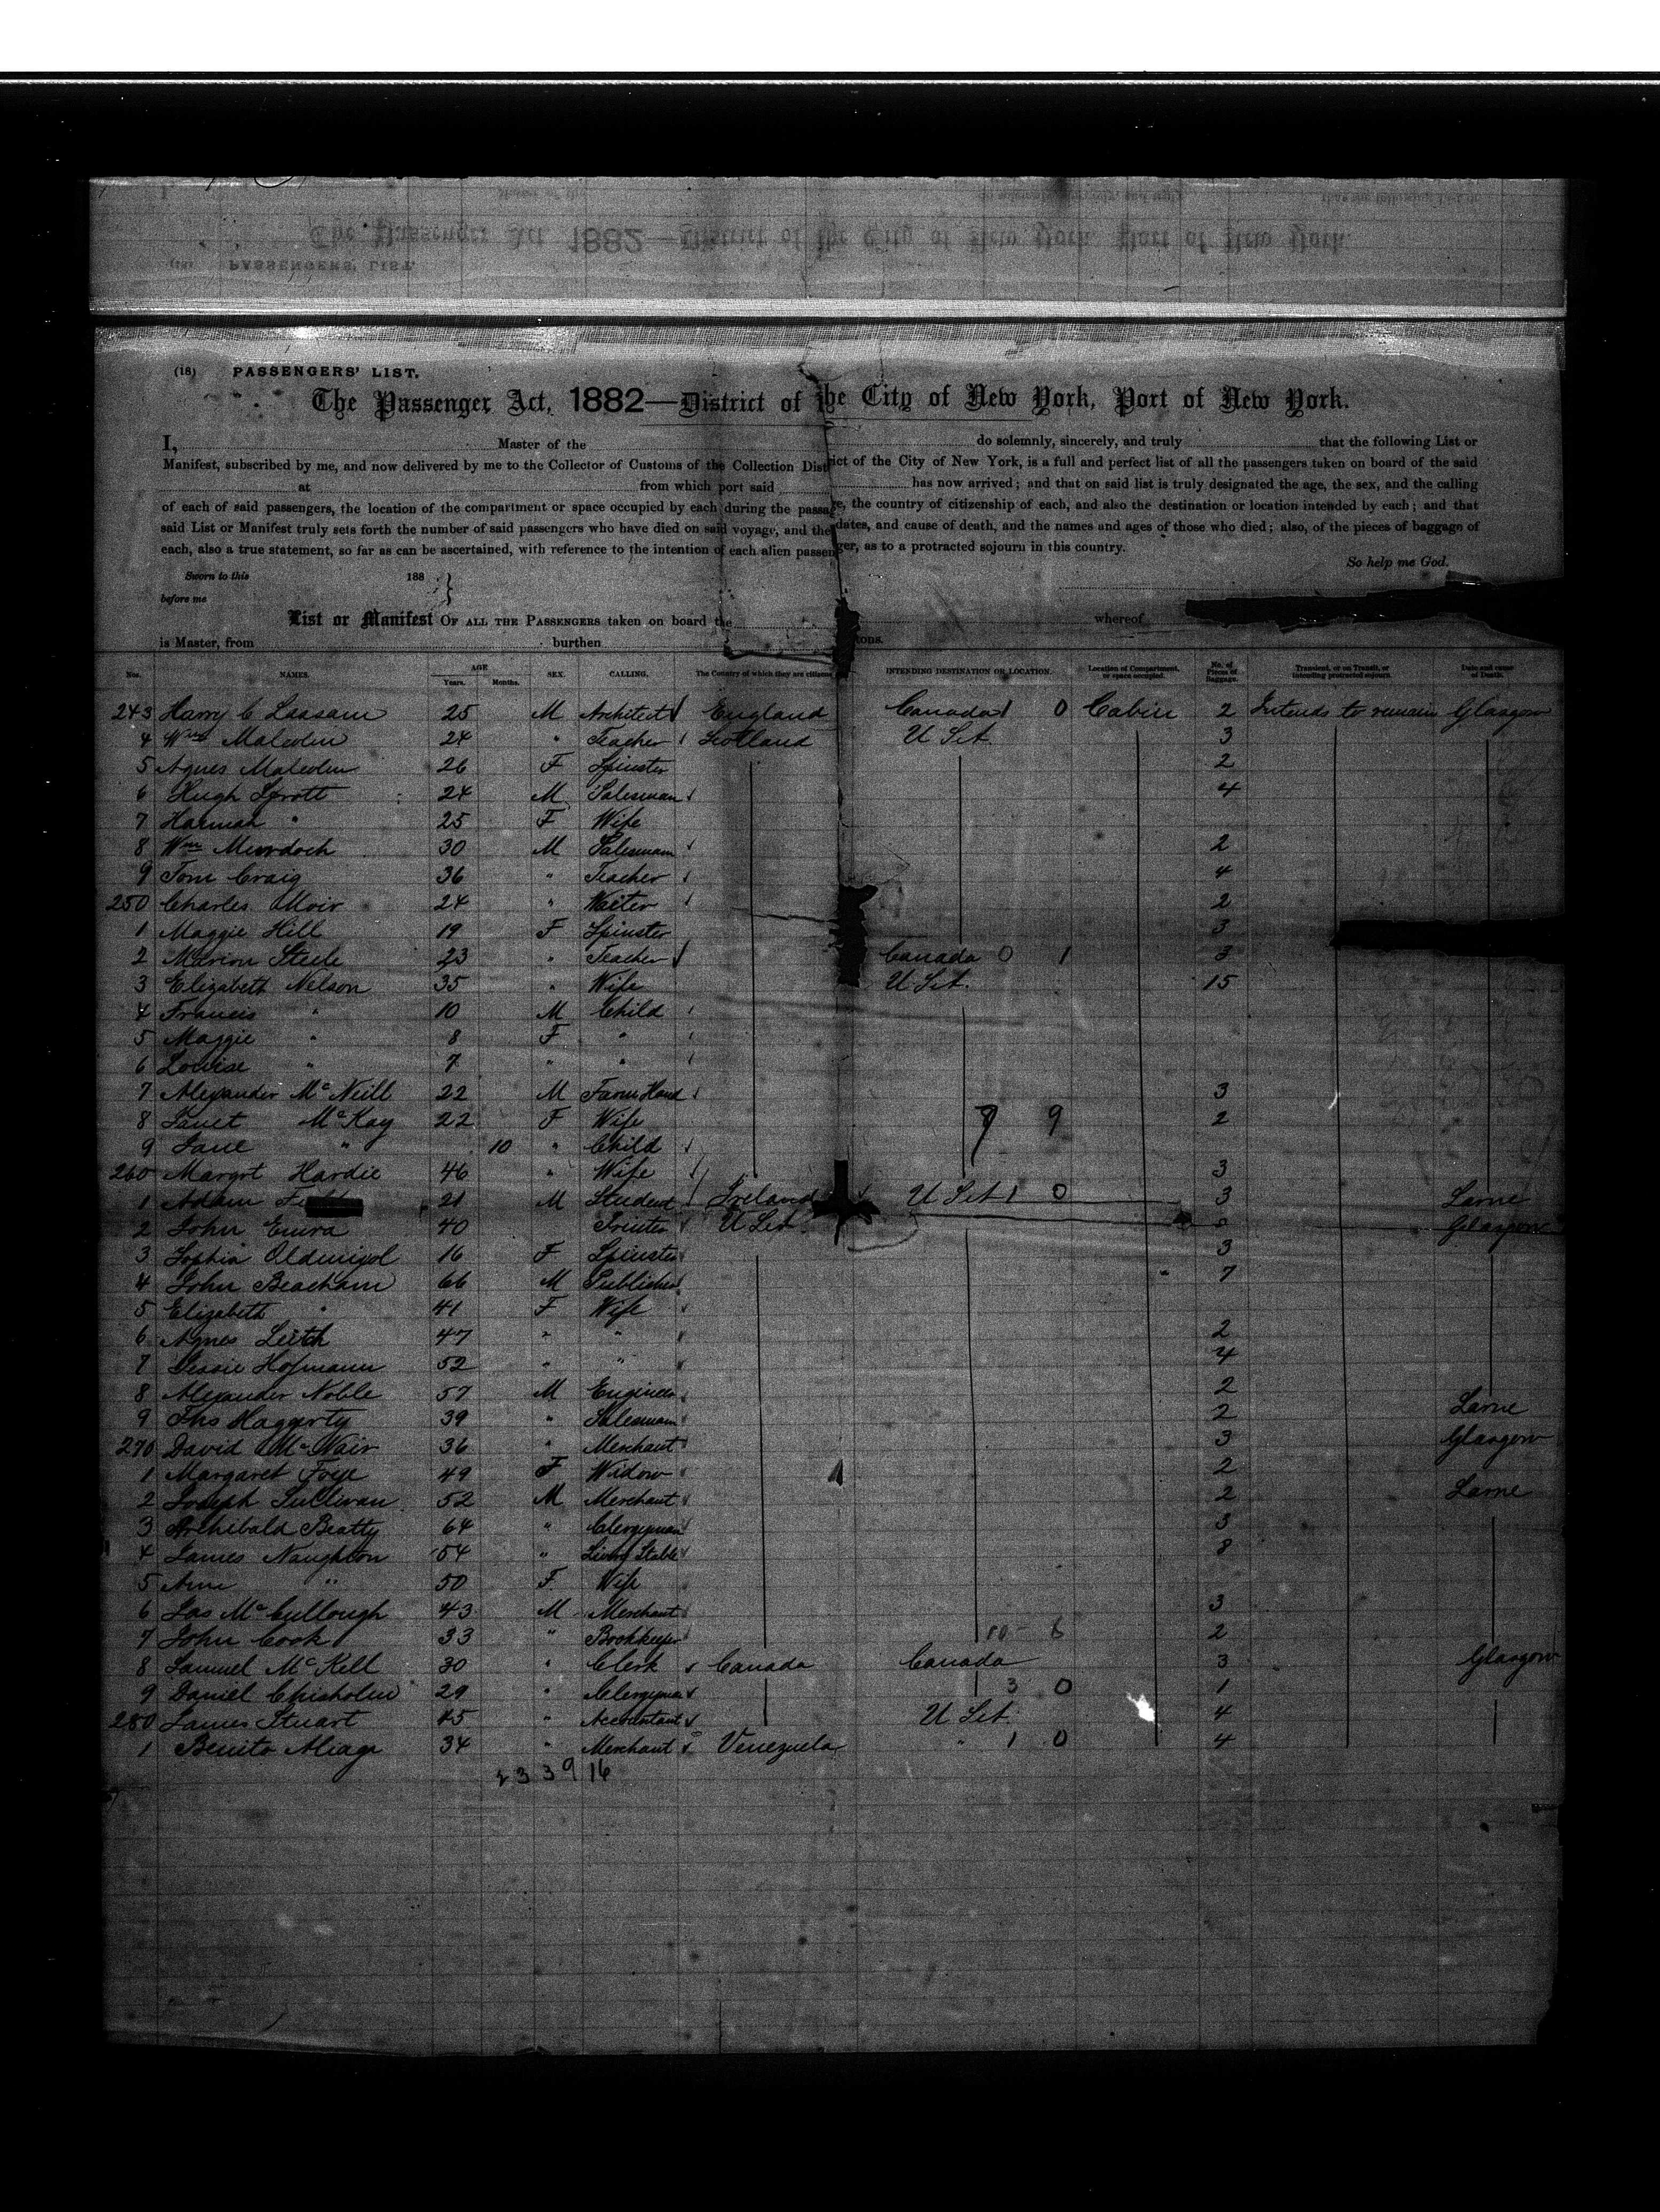 (18) PASSENGERS' LIST.
The Passenger Act, 1882—District of the City of New York, Port of New York.
I, Master of the do solemnly, sincerely, and truly that the following List or
Manifest, subscribed by me, and now delivered by me to the Collector of Customs of the Collection District of the City of New York, is a full and perfect list of all the passengers taken on board of the said
at from which port said has now arrived; and that on said list is truly designated the age, the sex, and the calling
of each of said passengers, the location of the compartment or space occupied by each during the passage, the country of citizenship of each, and also the destination or location intended by each; and that
said List or Manifest truly sets forth the number of said passengers who have died on said voyage, and the dates, and cause of death, and the names and ages of those who died; also, of the pieces of baggage of
each, also a true statement, so far as can be ascertained, with reference to the intention of each alien passenger, as to a protracted sojourn in this country.
So help me God.
Sworn to this 188
before me
List or Manifest OF ALL THE PASSENGERS taken on board the whereof
is Master, from burthen tons.
Nos. NAMES. AGE Years. Months. SEX. CALLING. The Country of which they are citizens INTENDING DESTINATION OR LOCATION. Location of Compartment, or space occupied. No. of Pieces of Baggage. Transient, or on Transit, or intending protracted sojourn. Date and cause of Death.
243 Harry C Lassam 25 M Architect England Canada 1 0 Cabin 2 Intends to remain Glasgow
4 Wm Malcolm 24 " Teacher Scotland U St. 3
5 Agnes Malcolm 26 F Spinster 2
6 Hugh Sprott 24 M Salesman 4
7 Hannah " 25 F Wife
8 Wm Murdoch 30 M Salesman 2
9 Tom Craig 36 " Teacher 4
250 Charles Moir 24 " Waiter 2
1 Maggie Hill 19 F Spinster 3
2 Marion Steele 23 " Teacher Canada 0 1 3
3 Elizabeth Nelson 35 " Wife U St. 15
4 Francis " 10 M Child
5 Maggie " 8 F "
6 Louise " 7 " "
7 Alexander McNeill 22 M Farm Hand 3
8 Janet McKay 22 F Wife 9 9 2
9 Jane " 10 " Child
260 Margrt Hardie 46 " Wife 3
1 Adam 21 M Student Ireland U St 1 0 3 Larne
2 John 40 Printer U St Glasgow
3 Sophia 16 F Spinster 3
4 John Beacham 66 M Publisher 7
5 Elizabeth " 41 F Wife
6 Agnes Leitch 47 " " 2
7 Jessie Hofmann 52 " " 4
8 Alexander Noble 57 M Engineer 2
9 Ths Haggerty 39 " Salesman 2 Larne
270 David McNair 36 " Merchant 3 Glasgow
1 Margaret 49 F Widow 2
2 Joseph Sullivan 52 M Merchant 2 Larne
3 Archibald Beatty 64 " Clergyman 3
4 James Naughton 54 " Livery Stable 8
5 Ann " 50 F Wife
6 Jas McCullough 43 M Merchant 3
7 John Cook 33 " Bookkeeper 10 - 6 2
8 Samuel McKell 30 " Clerk Canada Canada 3 Glasgow
9 Daniel Chisholm 29 " Clergyman 3 0 1
280 James Stuart 45 " Accountant U St. 4
1 Benito Aliaga 34 " Merchant Venezuela " 1 0 4
23 39 16